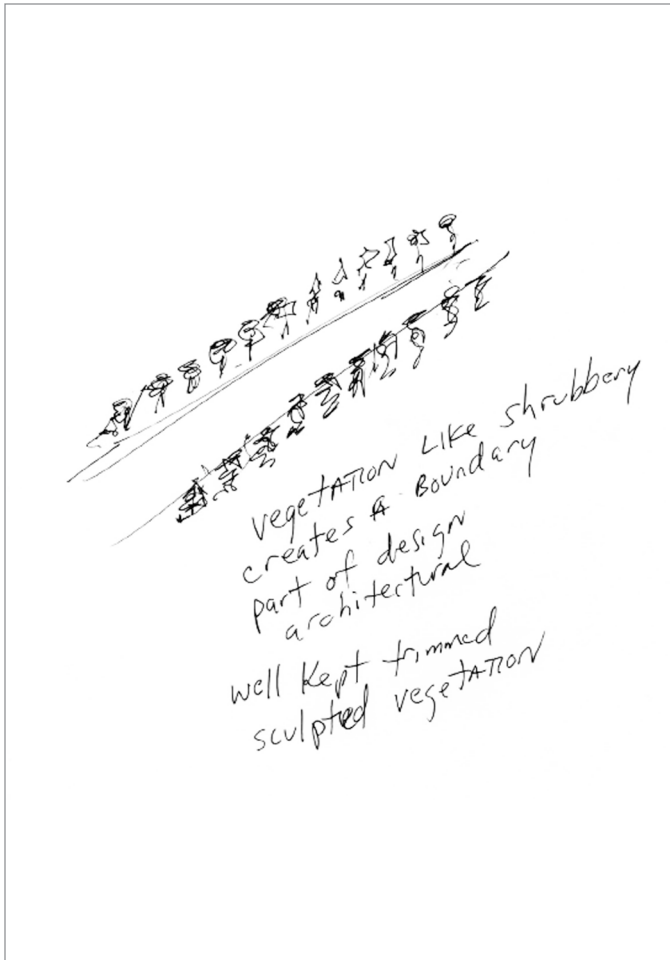 vegetATION LIKE shrubbery
creates A BOUNdary
part of design
architectural
well Kept trimmed
sculpted vegetATION